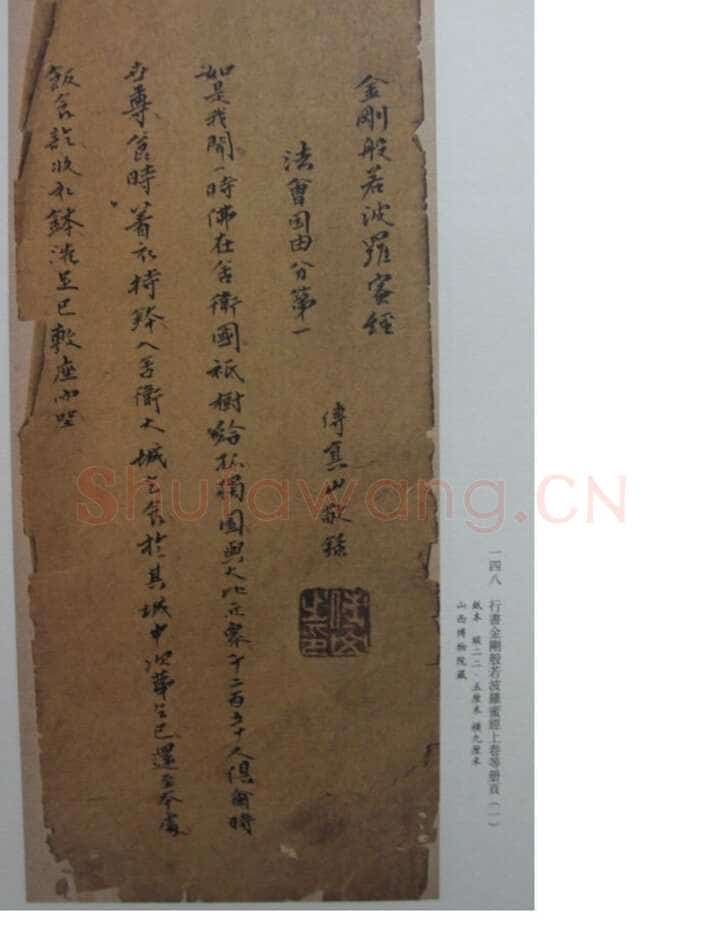 金剛般若波羅蜜經
法會因由分第一
傅真山敬錄
如是我聞一時佛在舍衛國祇樹給孤獨園與大比丘眾千二百五十人俱爾時
世尊食時著衣持鉢入舍衛大城乞食於其城中次第乞已還至本處
飯食訖收衣鉢洗足已敷座而坐
一四八 行書金剛般若波羅蜜經上卷等册頁(一)
紙本 縱二二·五厘米 橫九厘米
山西博物院藏
Shufawang.CN